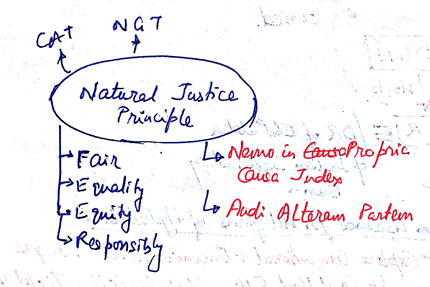 CAT
NGT
Natural Justice
Principle
Fair
Equality
Equity
Responsibly
Nemo in Causa Propria
Causa Index
Audi Alteram Partem